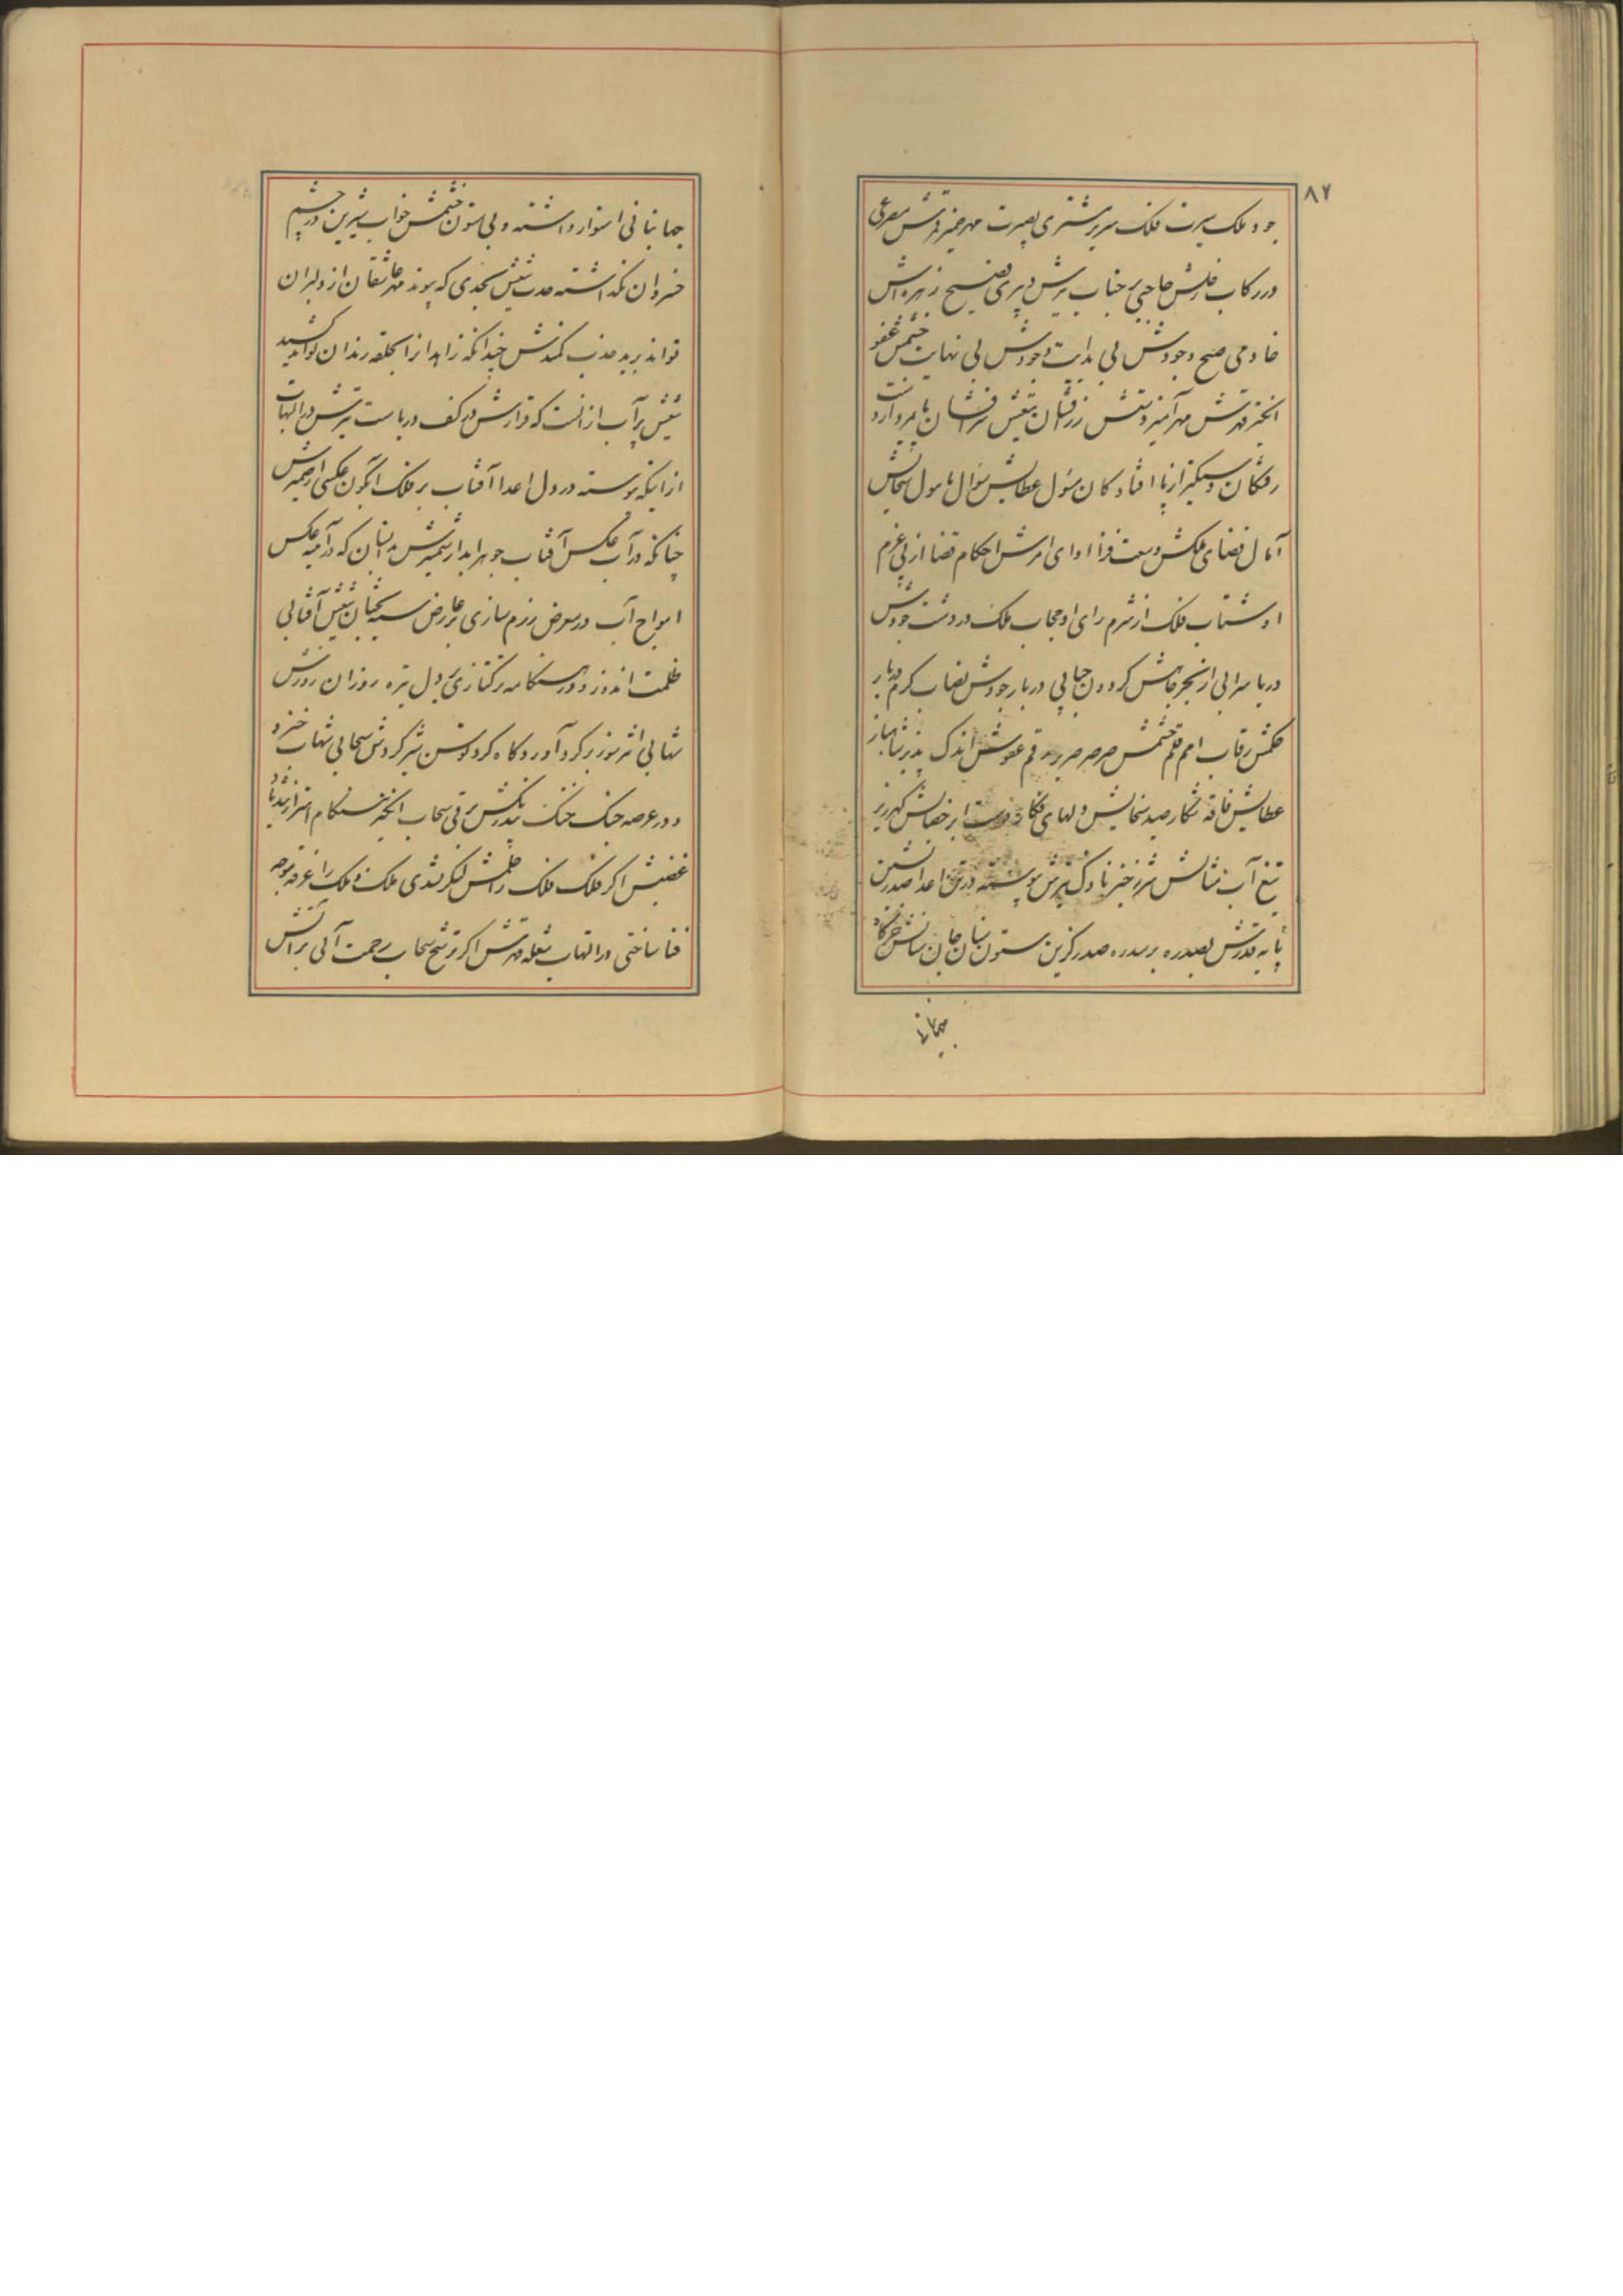 ۸۷
جود ملک سیرت فلک سریر مشتری بصیرت مهر ضمیر قدرتش
در رکاب رخش حاجبی بر جناب تیرش دبیری فصیح زهره اش
خادمی صبیح وجودش بی بدایت وجودش بی نهایت خشمش عفو
انگیز قهرتش مهر آمیز دستش زرفشان تیغش سرفشان پایمرد از دست
رفتگان دستگیر از پا افتادگان مسئول عطایش سؤال مامول سخایش
آمال فضای ملکش وسعت فزا ادای امرش احکام قضا از پی عزم
او شتاب فلک از شرم رای او حجاب ملک در دشت جودش
دریا سرابی از بحر جاهش گردون حبابی دربار جودش نصاب کرم دربار
حکمش رقاب امم قلم خشمش صرصر صریر رقم عفوش اندک پذیر شاهباز
عطایش فاقه شکار صید سخایش دلهای فکار دست ابر خصالش گهرریز
تیغ آب مثالش شررخیز ناوک تیرش پیوسته در تن اعدا صدرنشین
پایه قدرش بصدره برسدره صدرگزین ستون بنیان جان ستانش خرگاه
جهانبانی
جهانبانی استوار داشته و بی ستون خشمش خواب شیرین در چشم
خسروان نگذاشته حدت تیغش بحدی که پیوند مهر عاشقان از دلبران
تواند برید جذب کمندش چندانکه زاهدانرا بحلقه رندان تواند کشید
تیغش پر آب از آنست که قرارش در کف دریاست تیرش در التهاب
از اینکه پیوسته در دل اعدا آفتاب بر فلک آبگون عکسی از ضمیرش
چنانکه در آب عکس آفتاب جوهر آبدار شمشیرش بدانسان که در آینه عکس
امواج آب در معرض رزم سازی بر عارض سیه بختان تیغش آفتابی
ظلمت اندوز و در هنگامه ترکتازی بر دل تیره روزان
شهابی اثر سوز بر گرد آورد گاه گرد توسن شیر گردش سحابی شهاب خیز و
در عرصه جنگ خنگ تندر بانگش برقی سحاب انگیز هنگام اهتزاز تندباد
غضبش اگر فلک فلک را حلمش لنگر نشدی ملک و ملک را غرقه موجه
فنا ساختی در التهاب شعله قهرتش اگر ترشح سحاب رحمت آبی بر آتش